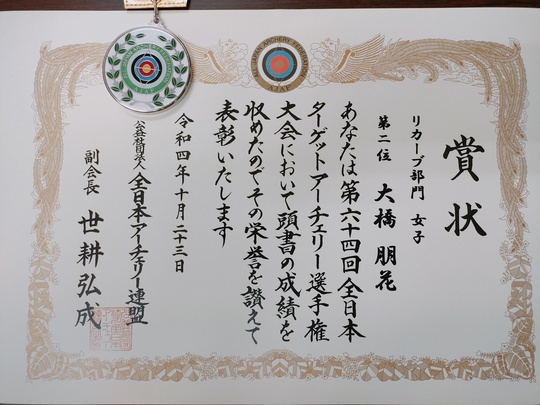 賞状
リカーブ部門 女子
第二位 大橋 朋花
あなたは第六十四回全日本
ターゲットアーチェリー選手権
大会において頭書の成績を
収めたのでその栄誉を讃えて
表彰いたします
令和四年十月二十三日
公益社団法人 全日本アーチェリー連盟
副会長 世耕弘成